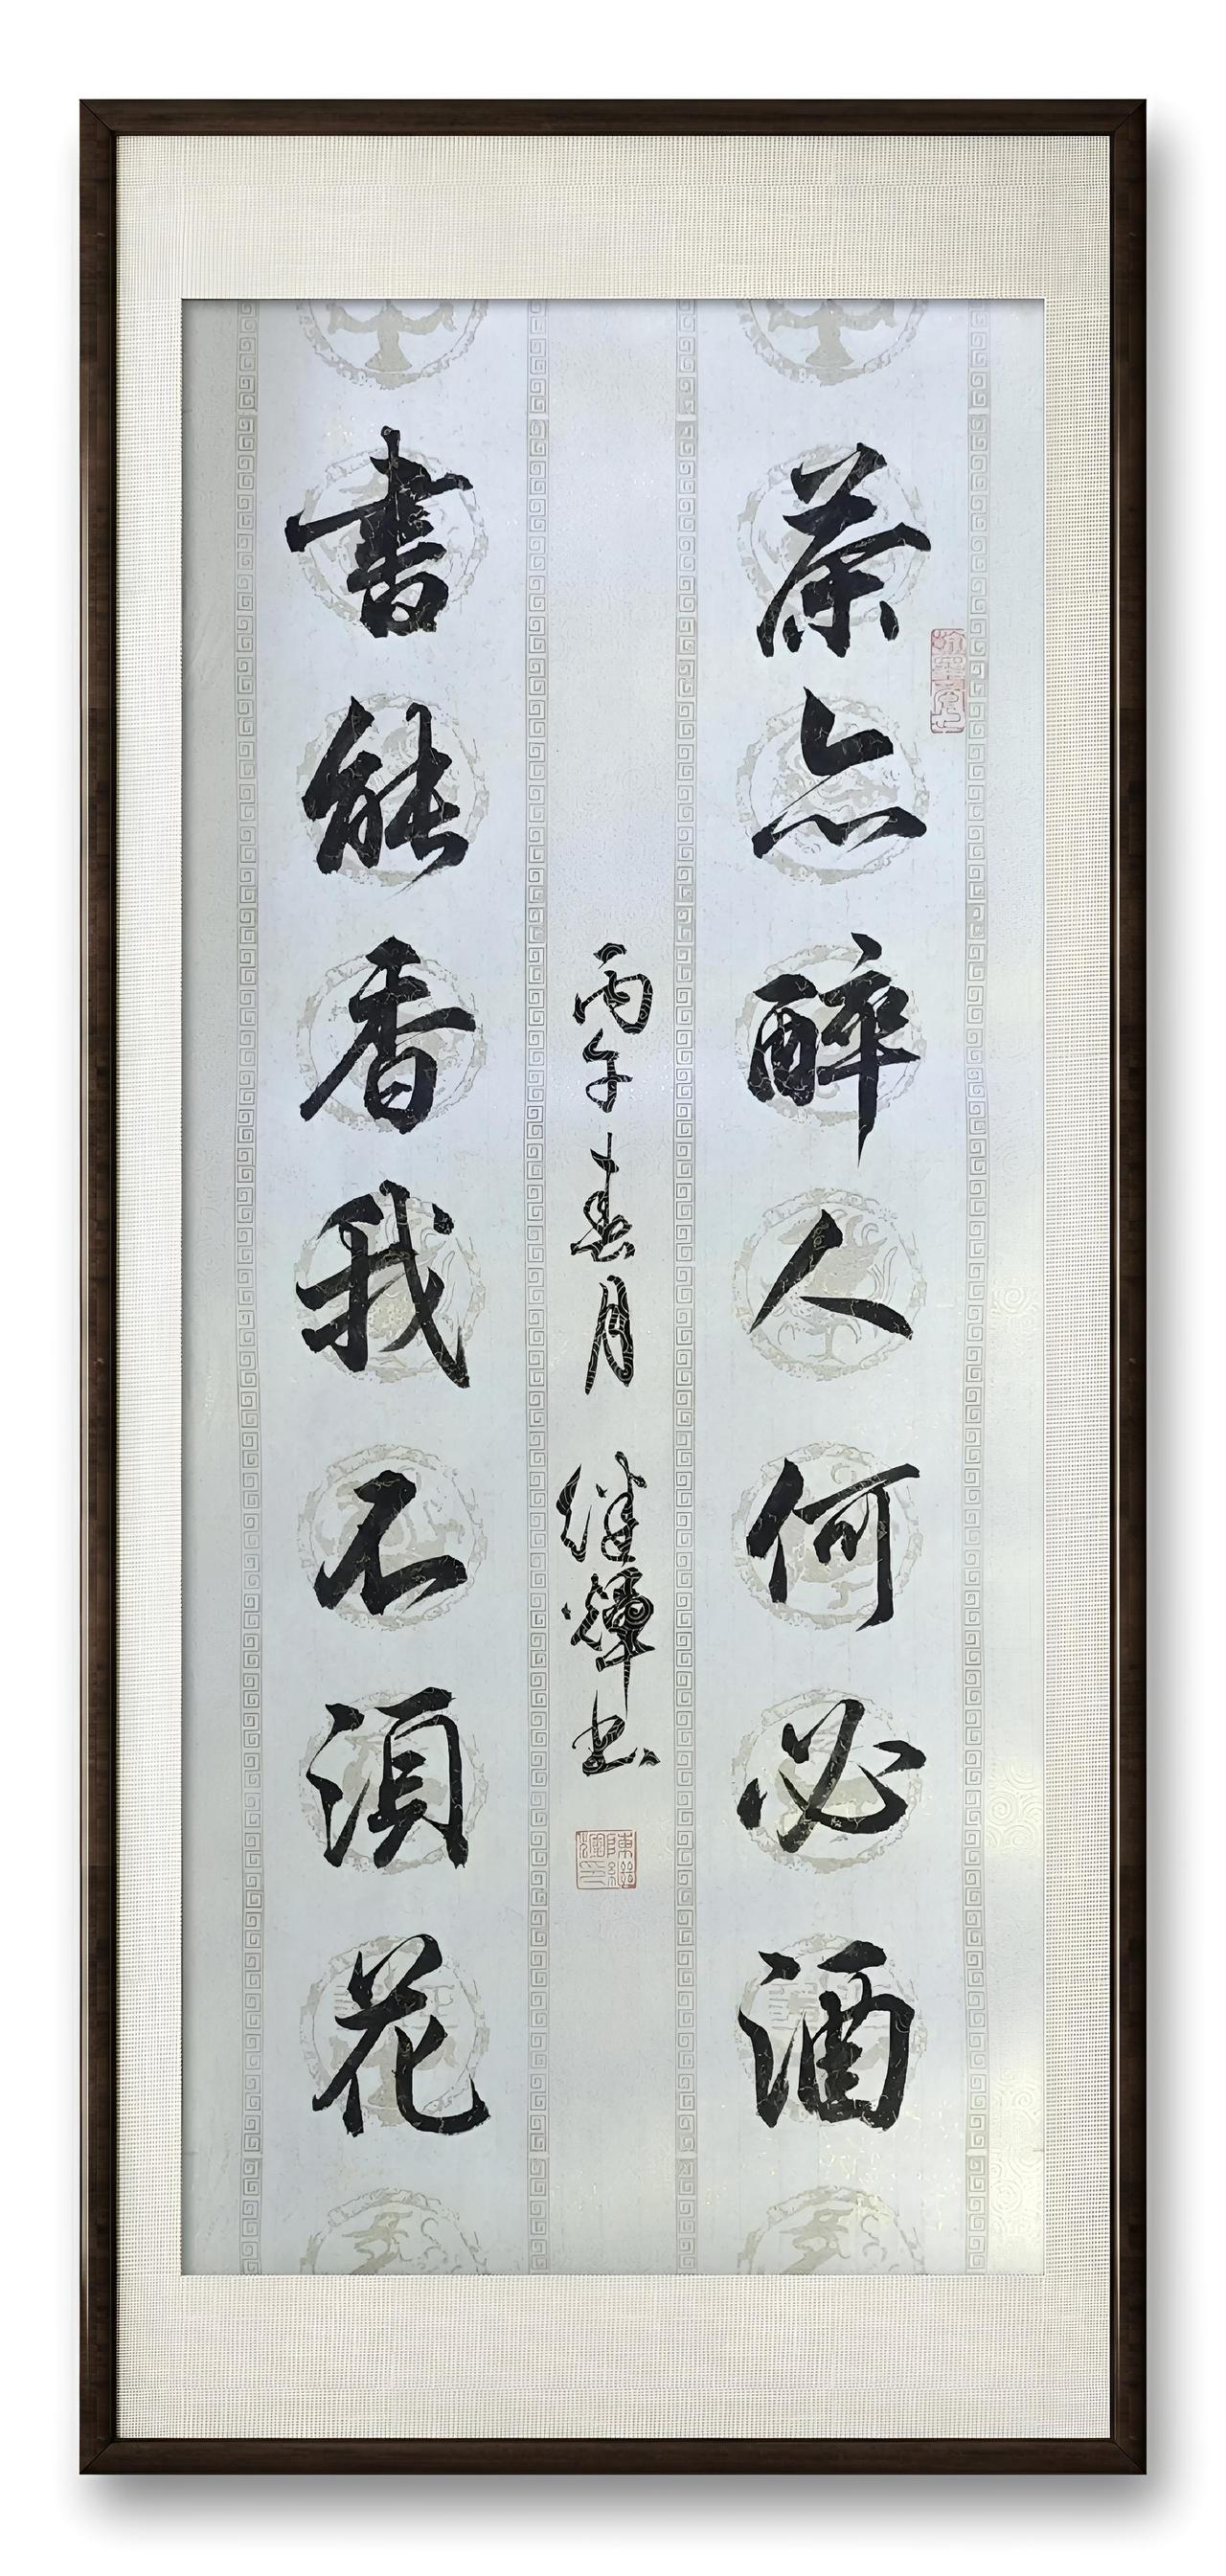 茶亦醉人何必酒
書能香我不須花
丙午春月 继輝书